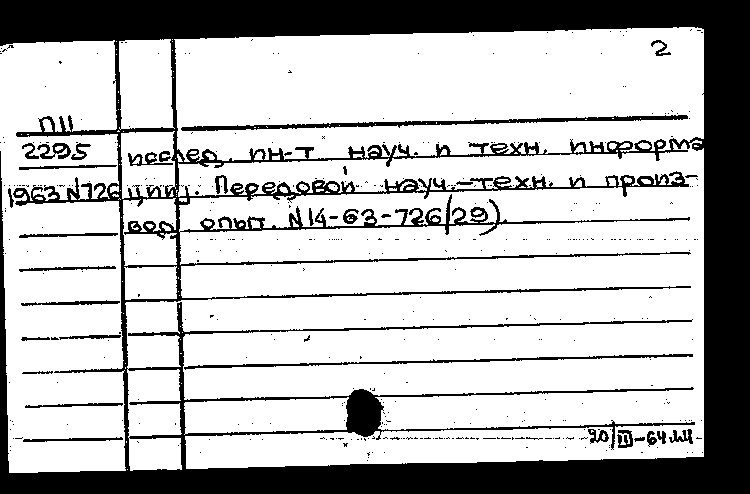 2
П11
2295 исслед. ин-т науч. и техн. информа
1963 N726 ции]. Передовой науч.-техн. и произ-
вод. опыт. N14-63-726/29).
20/II-64